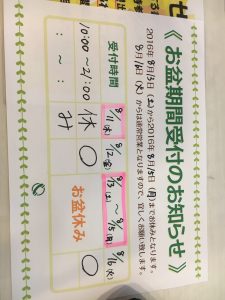 せ
《お盆期間受付のお知らせ》
2016年 8月13日(土)から2016年 8月15日(月)までお休みとなります。
8月16日(火)からは通常営業となりますので、宜しくお願い致します。
受付時間 8/11(木) 8/12(金) 8/13(土)～8/15(月) 8/16(火)
10:00～21:00 休み ○ お盆休み ○
～
～